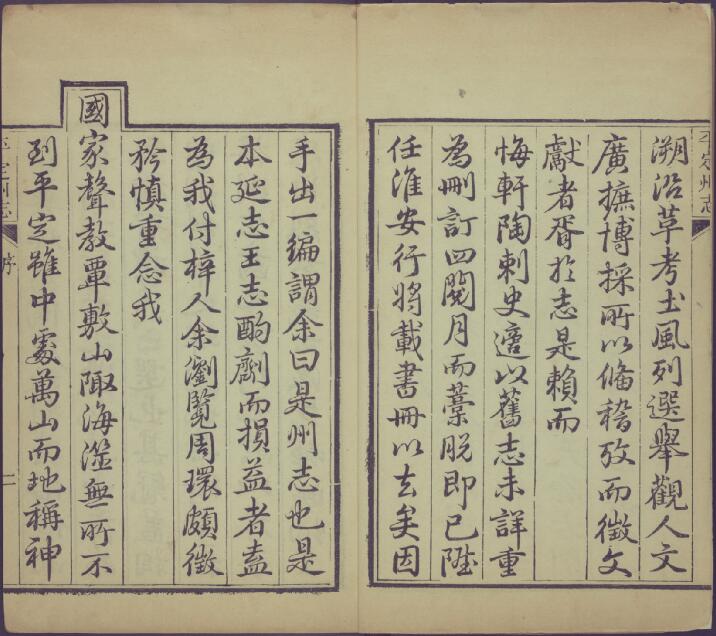 溯沿革考土風列選舉觀人文
廣摭博採所以俻稽攷而徵文
獻者胥扵志是賴而
悔軒陶刺史適以舊志未詳重
為刪訂四閱月而藁脫即已陞
任淮安行將載書冊以去矣因
手出一編謂余曰是州志也是
本延志王志酌劑而損益者盍
為我付梓人余瀏覽周環頗徵
矜慎重念我
國家聲教覃敷山陬海澨無所不
到平定雖中處萬山而地稱神
平定州志
平定州志
序
二